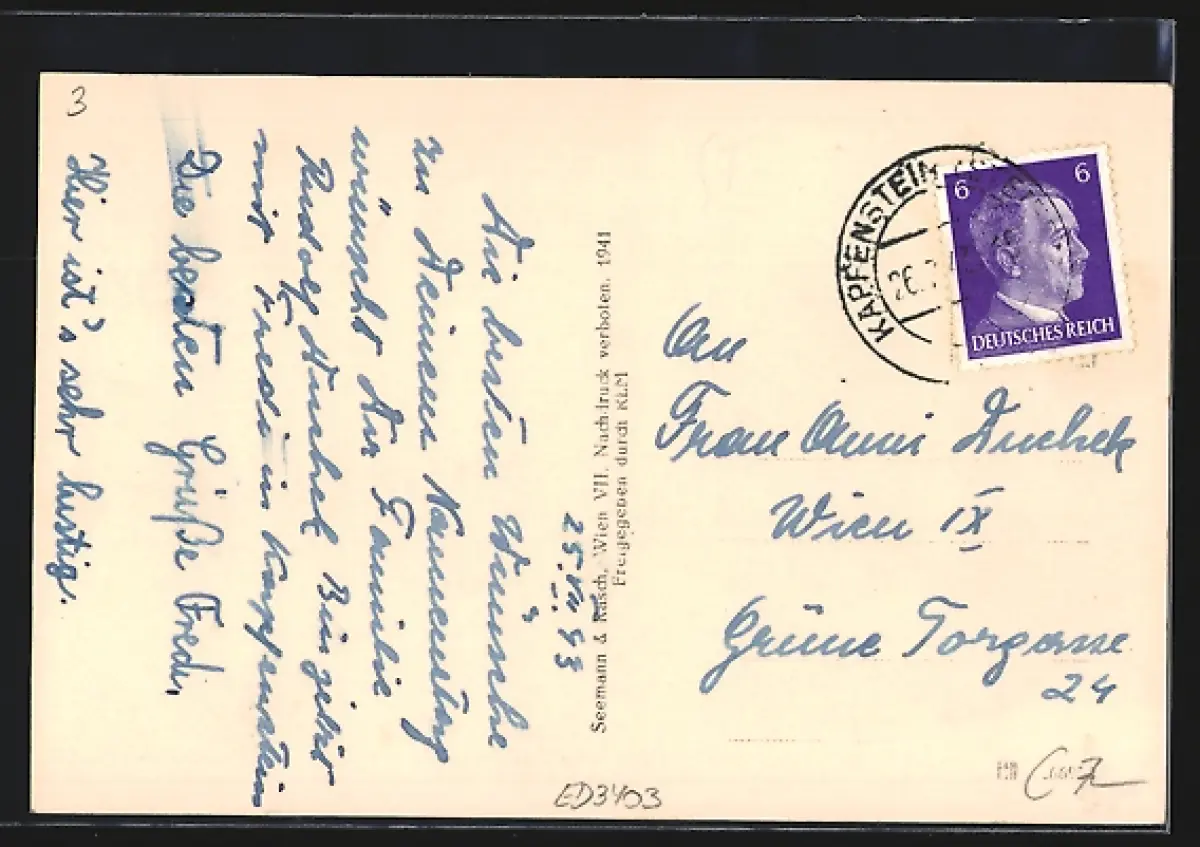 3
25.VII.43
Die besten Wünsche
zu Deinem Namenstag
wünscht Dir Familie
Rudolf
mit Fredi in Kapfenstein
Die besten Grüße Fredi,
Hier ist's sehr lustig.
Seemann & Rasch, Wien VII. Nachdruck verboten. 1941
Freigegeben durch RLM
KAPFENSTEIN
26.
6 6
DEUTSCHES REICH
An
Frau Anni Duchek
Wien IX
Grüne Torgasse
24
ED3403